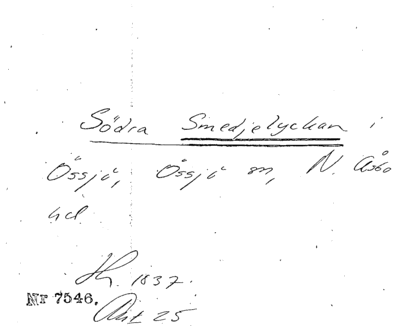 Södra Smedjelyckan i
Össjö, Össjö sn, N. Åsbo
hd
Hy. 1837.
Nr 7546.
Akt 25